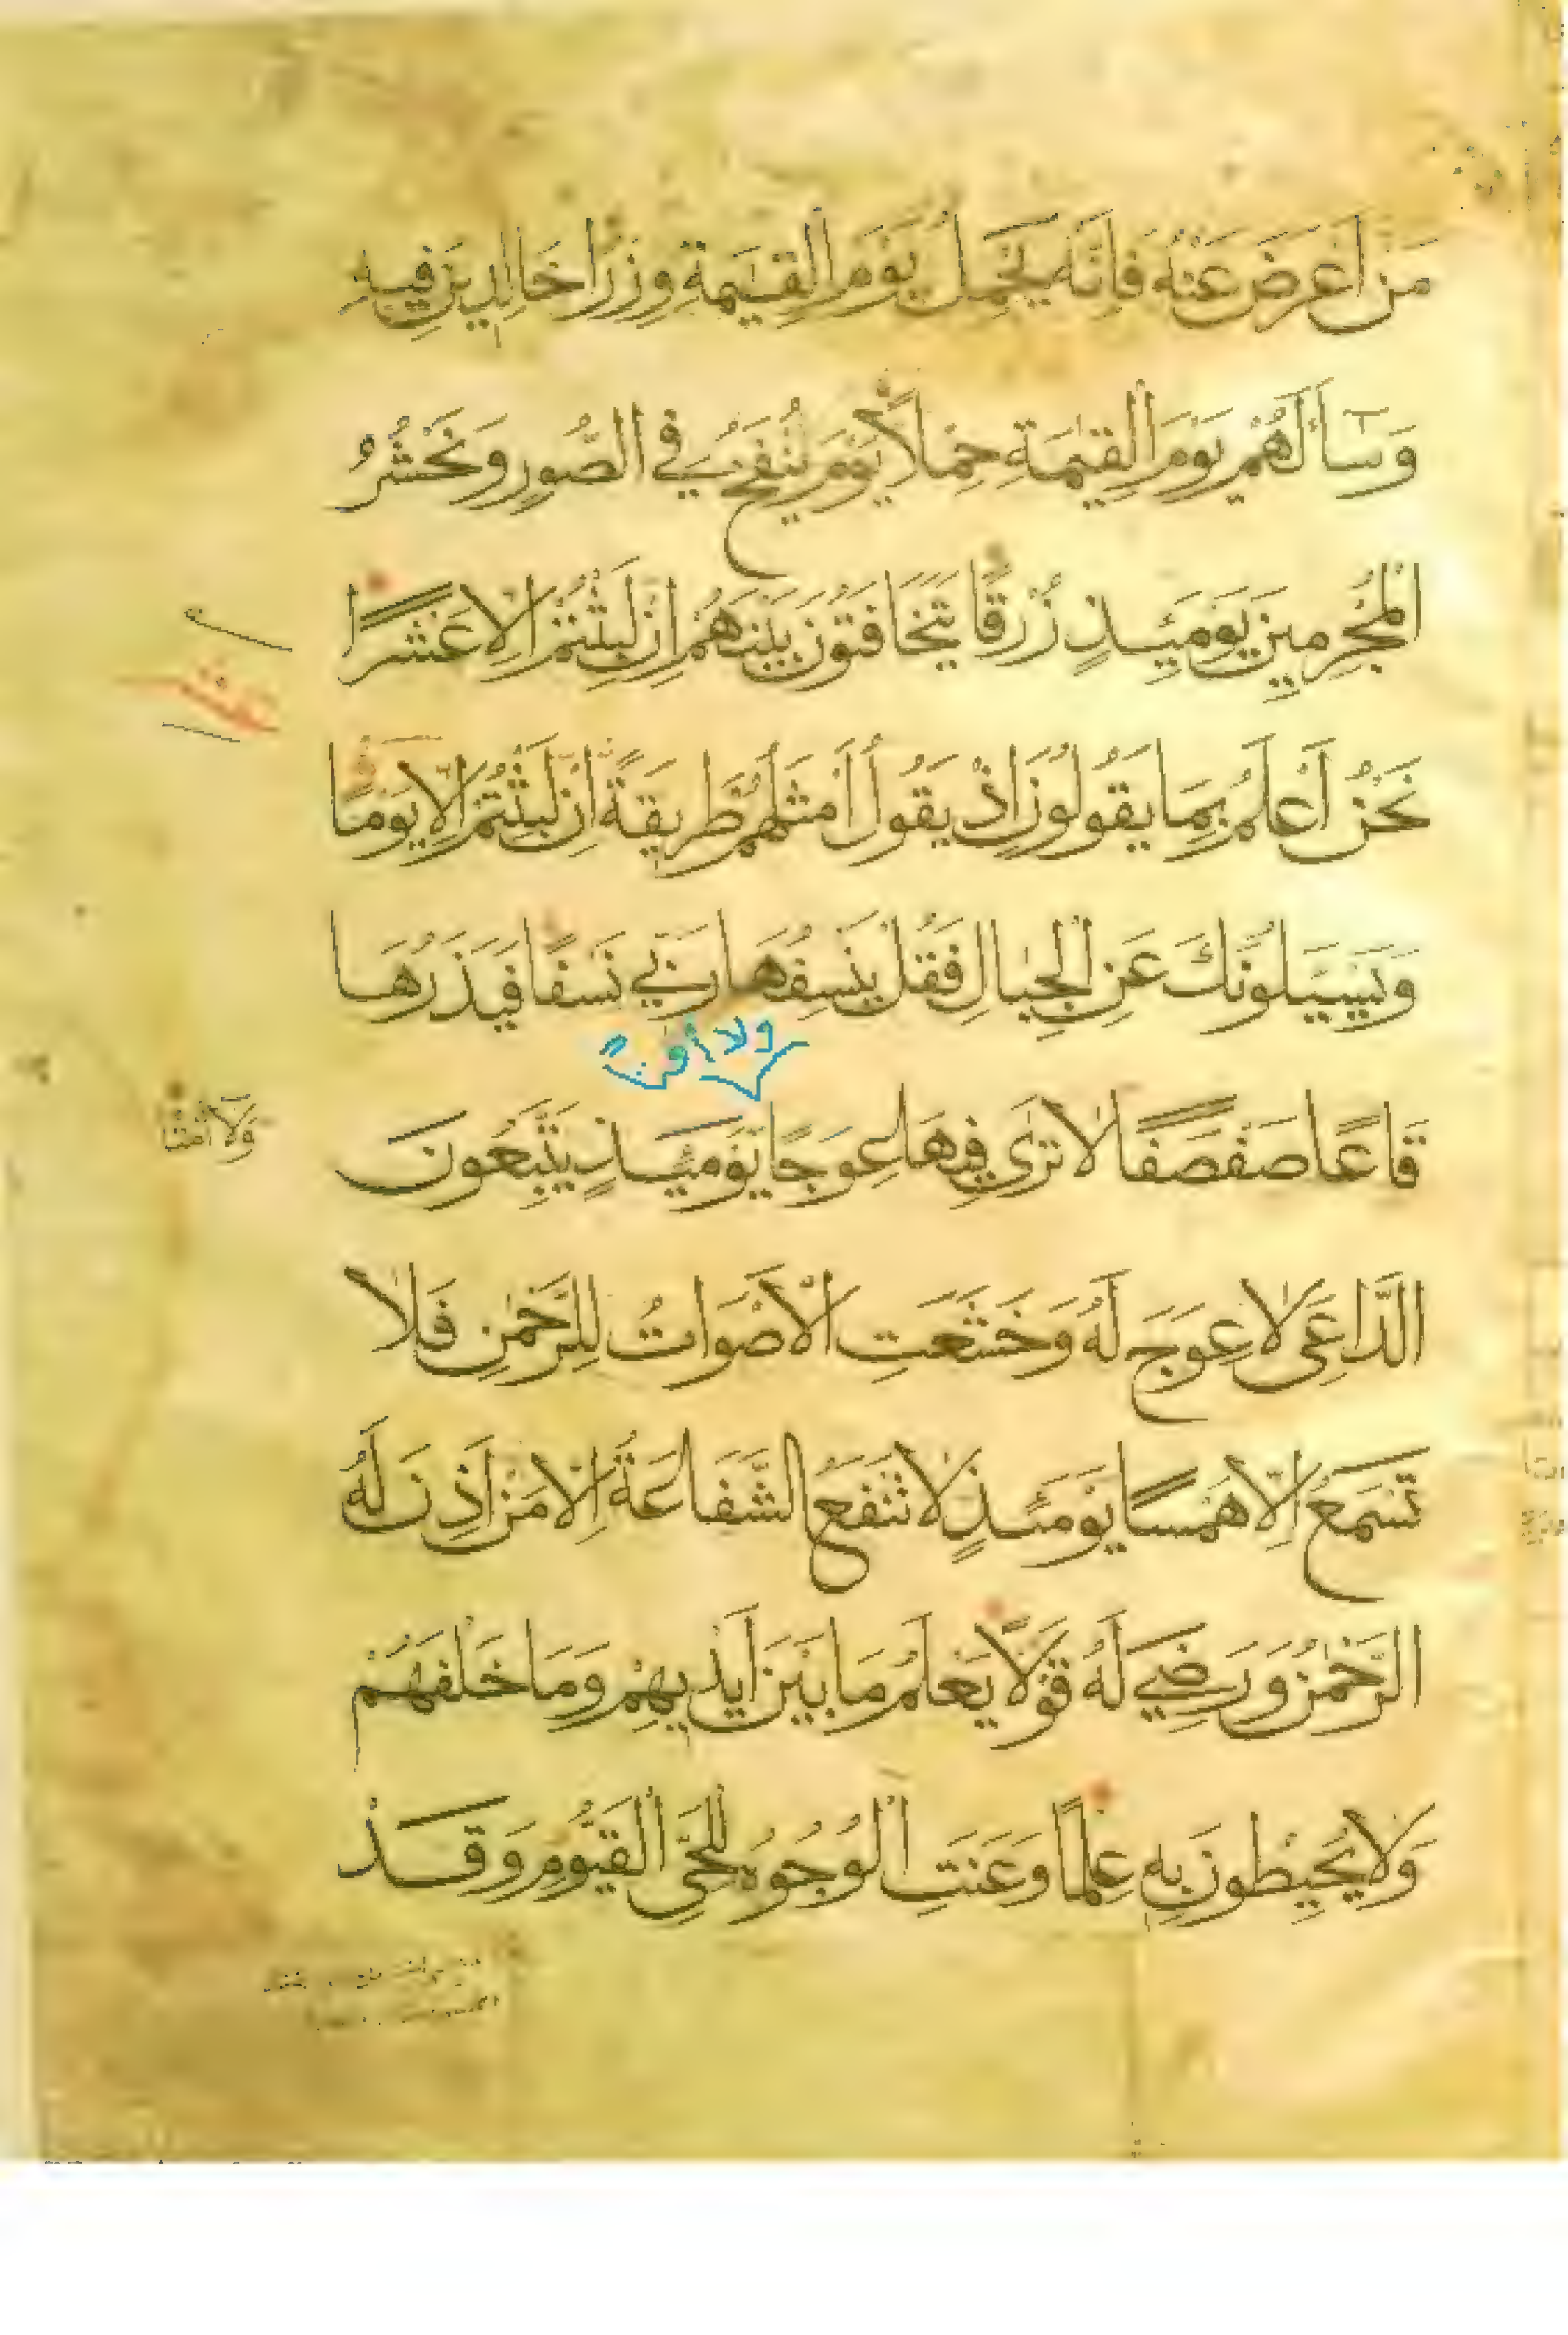 مَنْ أَعْرَضَ عَنْهُ فَإِنَّهُ يَحْمِلُ يَوْمَ الْقِيٰمَةِ وِزْرًا خَالِدِينَ فِيهِ
وَسَآءَ لَهُمْ يَوْمَ الْقِيٰمَةِ حِمْلًا يَوْمَ يُنْفَخُ فِي الصُّورِ وَنَحْشُرُ
الْمُجْرِمِينَ يَوْمَئِذٍ زُرْقًا يَتَخَافَتُونَ بَيْنَهُمْ إِنْ لَبِثْتُمْ إِلَّا عَشْرًا
نَحْنُ أَعْلَمُ بِمَا يَقُولُونَ إِذْ يَقُولُ أَمْثَلُهُمْ طَرِيقَةً إِنْ لَبِثْتُمْ إِلَّا يَوْمًا
وَيَسْـَٔلُونَكَ عَنِ الْجِبَالِ فَقُلْ يَنْسِفُهَا رَبِّي نَسْفًا فَيَذَرُهَا
ولا أمتًا
قَاعًا صَفْصَفًا لَا تَرَى فِيهَا عِوَجًا يَوْمَئِذٍ يَتَّبِعُونَ
وَلَآ أَمْتًا
الدَّاعِيَ لَا عِوَجَ لَهُ وَخَشَعَتِ الْأَصْوَاتُ لِلرَّحْمٰنِ فَلَا
تَسْمَعُ إِلَّا هَمْسًا يَوْمَئِذٍ لَا تَنْفَعُ الشَّفَاعَةُ إِلَّا مَنْ أَذِنَ لَهُ
الرَّحْمٰنُ وَرَضِيَ لَهُ قَوْلًا يَعْلَمُ مَا بَيْنَ أَيْدِيهِمْ وَمَا خَلْفَهُمْ
وَلَا يُحِيطُونَ بِهِ عِلْمًا وَعَنَتِ الْوُجُوهُ لِلْحَيِّ الْقَيُّومِ وَقَدْ